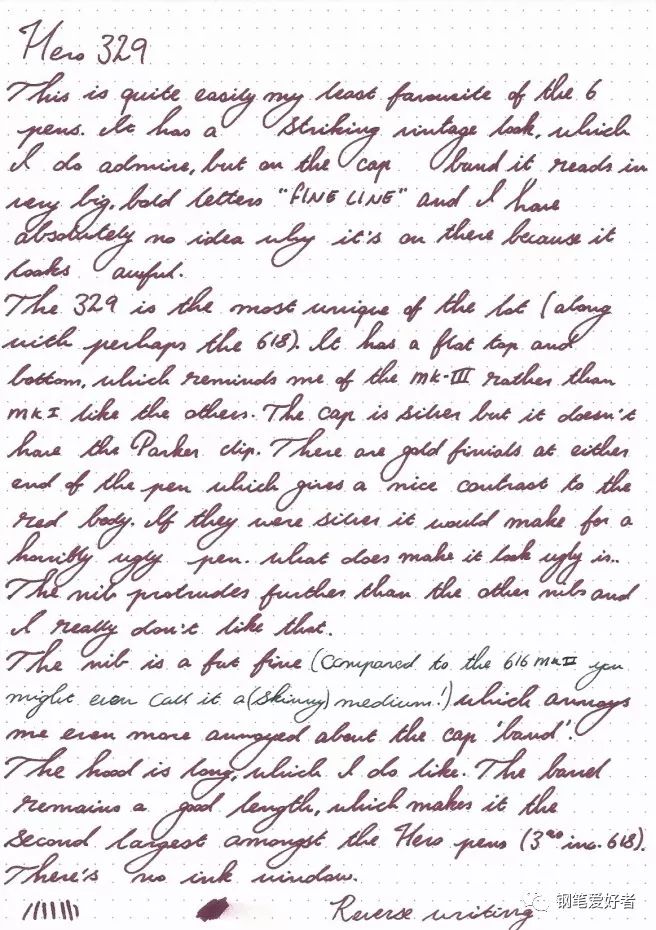 Hero 329
This is quite easily my least favourite of the 6
pens. It has a striking vintage look, which
I do admire, but on the cap band it reads in
very big, bold letters "FINE LINE" and I have
absolutely no idea why it's on there because it
looks awful.
The 329 is the most unique of the lot (along
with perhaps the 618). It has a flat top and
bottom, which reminds me of the mk-III rather than
mk I like the others. The cap is silver but it doesn't
have the Parker clip. There are gold finials at either
end of the pen which gives a nice contrast to the
red body. If they were silver it would make for a
horribly ugly pen. what does make it look ugly is..
The nib protrudes further than the other nibs and
I really don't like that.
The nib is a fat fine (compared to the 616 mk II you
might even call it a (skinny) medium!) which annoys
me even more annoyed about the cap 'band'.
The hood is long, which I do like. The barrel
remains a good length, which makes it the
second largest amongst the Hero pens (3rd inc. 618).
There's no ink window.
Reverse writing
钢笔爱好者